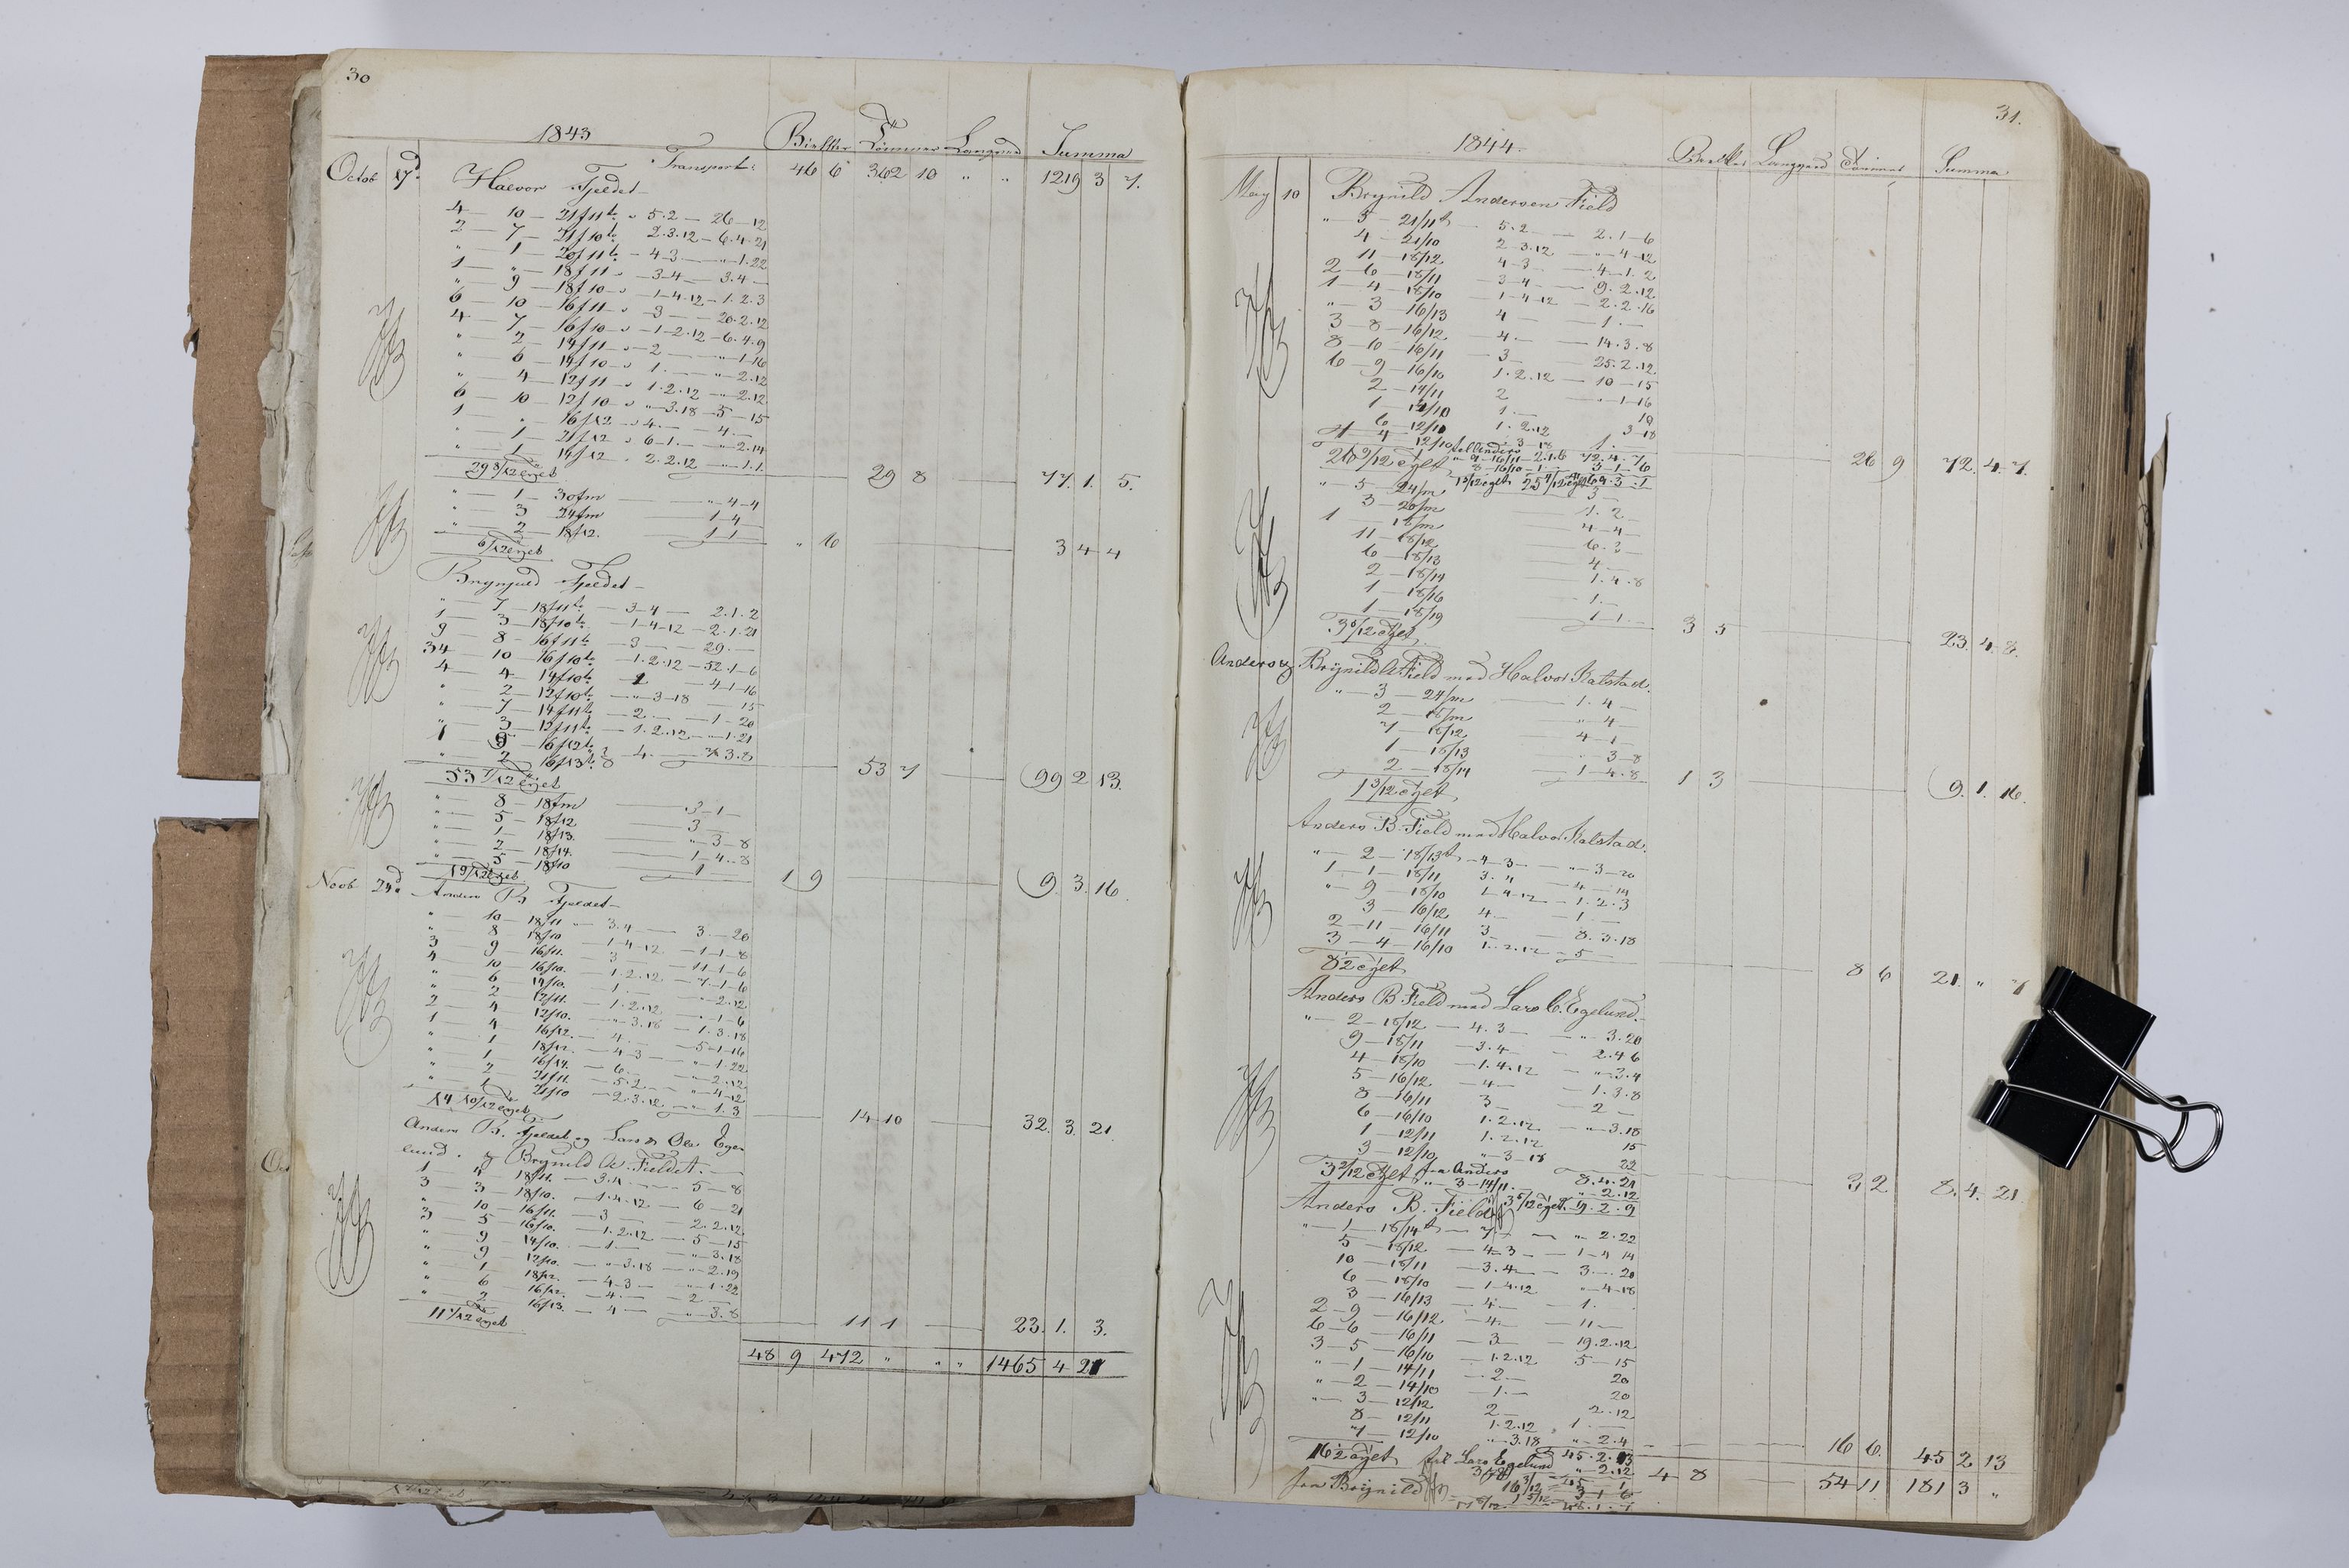 30
1843 Bielker Tømmer Langved Summa
Transport: 46 6 362 10 " " 1219 3 7.
Octob 17d Halvor Fjeldet
4 — 10 — 21f11t. " 5.2 — 26 — 12
2 — 7 — 21f10t. 2.3.12 — 6.4.21
" 1 — 20f11t. — 4-3 — " — 1.22
1 — " — 18f11 " — 3-4 — 3.4 —
" 9 — 18f10 " — 1-4-12 — 1.2.3
6 — 10 — 16f11 " 3 — 20.2.12
4 — 7 — 16f10 " — 1-2.12 — 6.4.9
" 2 — 14f11 " — 2 — " — 1-16
" 6 — 14f10 " 1. — " — 2.12
" 4 — 12f11 " 1.2.12 — " — 2.12
6 — 10 — 12f10 " " — 3.18 — 5 — 15
1 — " 16f12 " 4. — 4. —
" 1 — 21f12 " 6-1. — " — 2.14
" 1 — 14f12 " 2.2.12 — " — 1.1.
29 8/12 eget 29 8 77. 1. 5.
" — 1 — 30fm — " — 4-4
" 3 24fm — 1-4 —
" — 2 — 18f12. — 1 1
6/12 eget " 6 3 4 4
Brynjuld Fjeldet
" — 7 — 18f11t. — 3-4 — 2.1.2
1 — 3 — 18f10t. — 1-4-12 — 2.1.21
9 — 8 — 16f11t. — 3 — 29. —
34 — 10 — 16f10t. — 1.2.12 — 52.1-6
4 — 4 — 14f10t. — 1 — 4-1-16
" 2 — 12f10t. — " — 3-18 — 15
" — 7 — 14f11t. — 2 — — 1-20
" 3 — 12f11t. — 1.2.12 — " — 1.21
53 7/12 eget 53 7 99 2 13.
" — 8 — 18fm — 3-1 —
" 5 — 18f12 — 3 —
" 1 — 18f13 — " — 3-8
" 2 — 18f14. — 1-4-8
" — 5 — 18f10 — 1 —
1 9/12 eget 1 9 9. 3. 16.
Novb 24d. Anders B Fjeldet
" 10 — 18f11 — 3.4 — 3 — 20
" 8 18f10 — 1-4-12 — 1-1-8
3 9 16f11. — 3 — 11-1-6
4 10 16f10. — 1.2.12 — 7-1-6
" 6 14f10. — 1. — " — 2.12
" 2 12f11. — 1.2.12 — " — 1-6
2 4 12f10. — " — 3.18 — 1.3.18
1 4 16f12. — 4. — 5-1-16
" 1 18f12. — 4-3 — " — 1.22
" 1 16f14. — 6. — " — 2.12
" 2 21f11. — 5.2 — " — 4-12
" 1 21f10 — 2.3.12 — " — 1.3
14 10/12 eget 14 10 32. 3. 21.
Anders B. Fjeldet og Lars Ols Ege-
lund. og Brynild A. Fieldet.
1 4 18f11. — 3.4 — 5 — 8
3 3 18f10. — 1.4.12 — 6 — 21
" 10 16f11. — 3 — 2.2.12
3 5 16f10. — 1.2.12 — 5 — 15
" 9 14f10. — 1 — " — 3.18
" 9 12f10. — " — 3.18 — " — 2.19
" 1 18f12. — 4-3 — " — 1.22
" 6 16f12. — 4. — 2. —
" 2 16f13. — 4 — " — 3.8
11 1/12 eget 11 1 23. 1. 3.
48 9 472 " " " 1465 4 21
31.
1844. Bielker Langved Tømmer Summa
May 10 Brynild Andersen Field
" — 5 — 21/11t — 5.2 — 2.1-6
4 — 21/10 2-3.12 — " — 4-12
11 — 18/12 4-3 — 4-1.2
2 — 6 — 18/11 — 3-4 — 9.2.12
1 — 4 — 18/10 — 1-4-12 — 2.2.16
" — 3 — 16/13 4 — — 1. —
3 — 8 — 16/12 — 4. — — 14.3.8
8 — 10 — 16/11 — 3 — 25.2.12
6 — 9 — 16/10 1.2.12 — 10 — 15
2 — 14/11 2 — " — 1-16
1 — 14/10 1. — 10
6 — 12/11 1.2.12 3-18
26 9/12 eget 26 9 72. 4. 7.
" — 5 — 24/m 3 —
3 — 20/m — 1.2 —
1 — 18/m — 4-4
11 — 18/12 — 6.3 —
6 — 18/13 — 4 —
2 — 18/14 — 1.4.8
1 — 18/16 — 1. —
1 — 18/19 — 1-1. —
3 5/12 eget 3 5 23. 4. 8.
Anders og Brynild A. Field med Halvor Kalstad.
" — 3 — 24/m — 1.4 —
2 — 18/m — " 4 —
7 — 18/12 — 4-1
1 — 18/13 — 3-8
2 — 18/14 — 1-4.8
1 3/12 eget 1 3 9. 1. 16.
Anders B. Field med Halvor Kalstad.
" — 2 — 18/13t — 4-3 — — " — 3-20
1 — 1 — 18/11 3.4 — 4 — 14
" — 9 — 18/10 1-4-12 — 1.2.3
3 — 16/12 4 — — 1 —
2 — 11 — 16/11 3 — 8.3.18
3 — 4 — 16/10 1.2.12 — 5 —
8 1/2 eget 8 6 21. " 7
Anders B. Field med Lars C. Egelund.
" — 2 — 18/12 — 4.3 — — " — 3.20
9 — 18/11 — 3.4 — 2.4 6
4 — 18/10 — 1.4.12 — " — 3.4
5 — 16/12 — 4 — — 1.3.8
8 — 16/11 3 — — 2 —
6 — 16/10 1.2.12 — " — 3.18
1 — 12/11 1.2.12 15
3 — 12/10 " — 3-18 22
3 2/12 eget fra Anders 8.4.21 3 2 8. 4. 21
" 3 — 14/11. — " — 2.12
Anders B. Field 3 5/12 eget. 9.2.9
" — 1 — 18/14t — 7 — — " 2.22
5 — 18/12 — 4-3 — 1-4 14
10 — 18/11 — 3.4 — 3 — 20
6 — 18/10 — 1-4.12 " 4-18
3 — 16/13 — 4 — — 1.
2 — 9 — 16/12 — 4 — — 11 —
6 — 6 — 16/11 — 3 — 19.2.12
3 — 5 — 16/10 — 1.2.12 5 — 15
" — 1 — 14/11 — 2 — 20
" — 2 — 14/10 — 1. — 20
" — 3 — 12/12 2 — 2.12
8 — 12/11 1.2.12 1. —
" 1 — 12/10 " 3.18 " — 2.4
16 1/2 eget til Lars Egelund 45.2.13 16 6. 45 2 13
fra Brynild 4 8 54 11 181 3 "